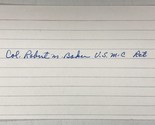 Col Robert M Baker U.S.M.C Ret